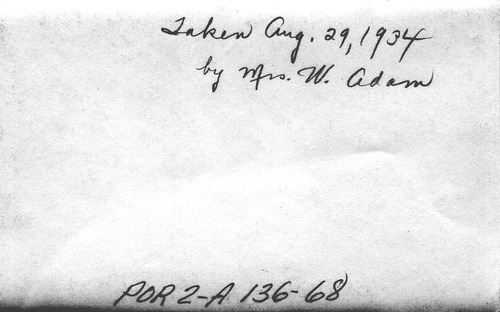 Taken Aug. 29, 1934
by Mrs. W. Adam
POR 2-A 136-68